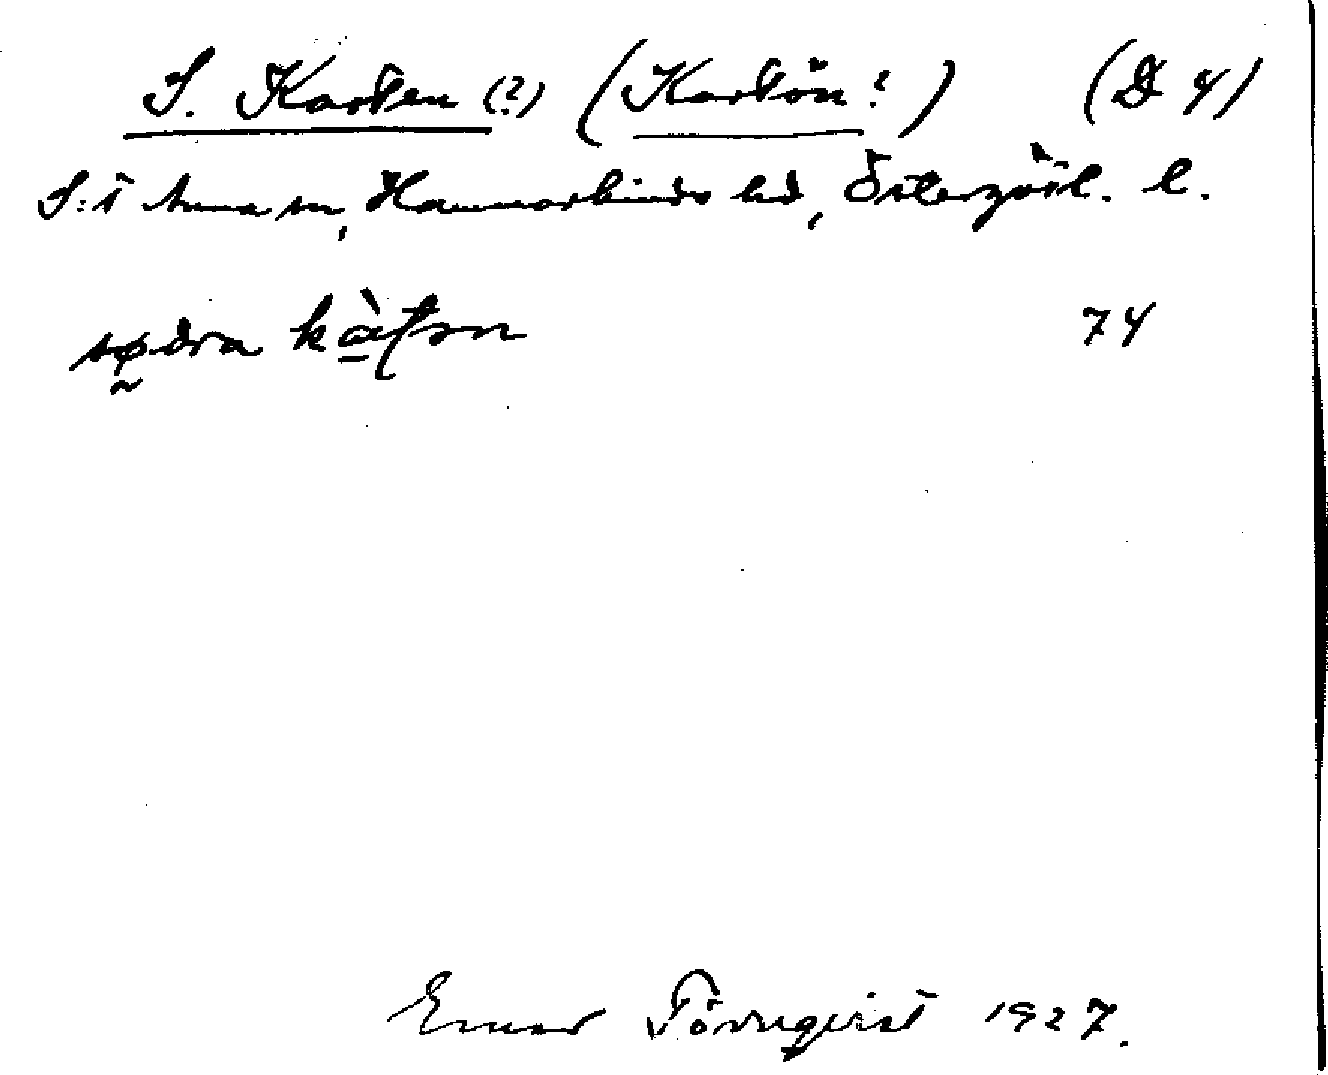 S. Karten (?) (Kartön?) (D 4)
S:t Anna sn, Hammarkinds hd, Östergötl. l.
södra 74
Einar Törnqvist 1927.